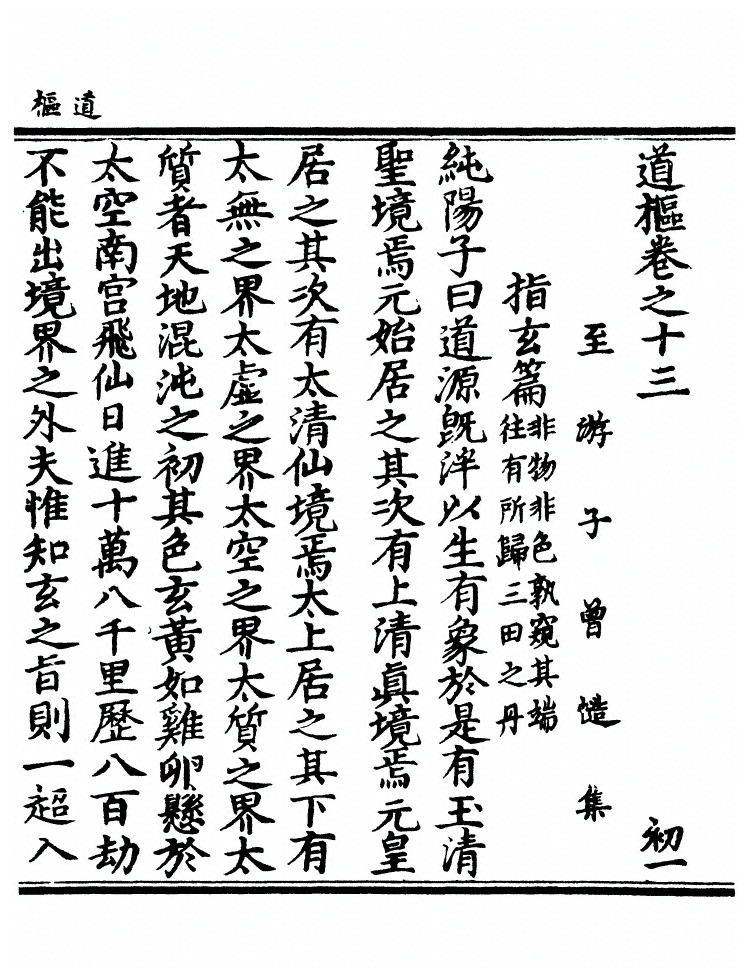 道樞
道樞卷之十三 初一
至游子曾慥集
指玄篇 非物非色孰窺其端
往有所歸三田之丹
純陽子曰道源旣泮以生有象於是有玉清
聖境焉元始居之其次有上清眞境焉元皇
居之其次有太清仙境焉太上居之其下有
太無之界太虛之界太空之界太質之界太
質者天地混沌之初其色玄黃如雞卵懸於
太空南宮飛仙日進十萬八千里歷八百劫
不能出境界之外夫惟知玄之旨則一超入